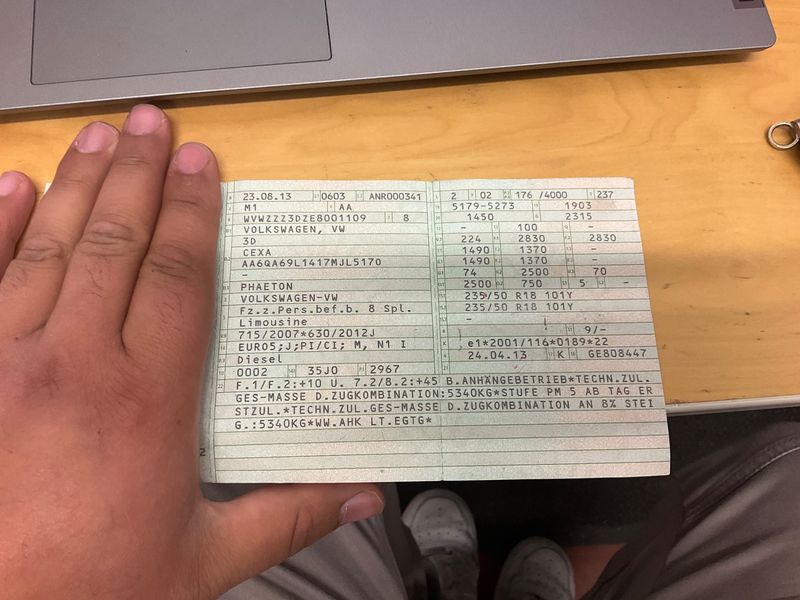 23.08.13 0603 ANR000341
M1 AA
WVWZZZ3DZE8001109 8
VOLKSWAGEN, VW
3D
CEXA
AA6QA69L1417MJL5170
-
PHAETON
VOLKSWAGEN-VW
Fz.z.Pers.bef.b. 8 Spl.
Limousine
715/2007*630/2012J
EURO5;J;PI/CI; M, N1 I
Diesel
0002 35J0 2967
2 02 176 /4000 237
5179-5273 1903
1450 2315
- 100 -
224 2830 2830
1490 1370 -
1490 1370 -
74 2500 70
2500 750 5 -
235/50 R18 101Y
235/50 R18 101Y
-
9/-
e1*2001/116*0189*22
24.04.13 K GE808447
F.1/F.2:+10 U. 7.2/8.2:+45 B.ANHÄNGEBETRIEB*TECHN.ZUL.
GES-MASSE D.ZUGKOMBINATION:5340KG*STUFE PM 5 AB TAG ER
STZUL.*TECHN.ZUL.GES-MASSE D.ZUGKOMBINATION AN 8% STEI
G.:5340KG*WW.AHK LT.EGTG*